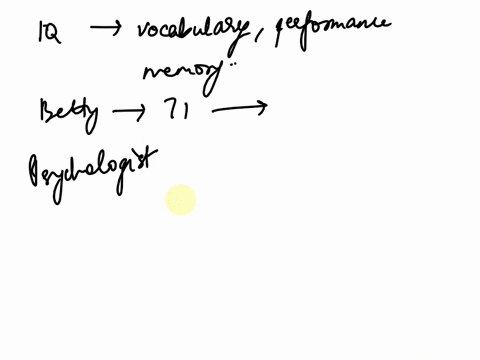 IQ → vocabulary, performance
memory..
Betty → 71 →
Psychologist